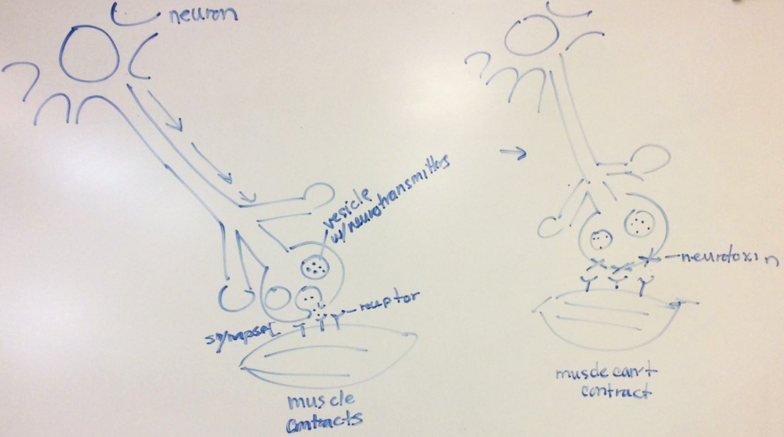 neuron
vesicle
w/neurotransmitters
receptor
synapse
muscle
contracts
neurotoxin
muscle can't
contract